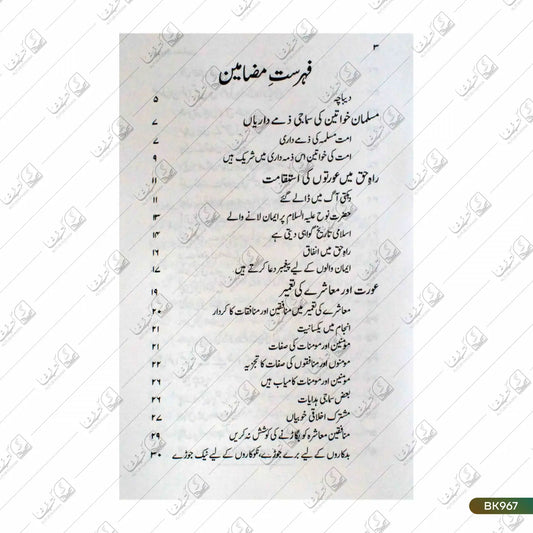 ۳
فہرستِ مضامین
دیباچہ ۵
مسلمان خواتین کی سماجی ذمے داریاں ۷
امت مسلمہ کی ذمے داری ۷
امت کی خواتین اس ذمہ داری میں شریک ہیں ۹
راہِ حق میں عورتوں کی استقامت ۱۱
دہکتی آگ میں ڈالے گئے ۱۱
حضرت نوح علیہ السلام پر ایمان لانے والے ۱۳
اسلامی تاریخ گواہی دیتی ہے ۱۴
راہِ حق میں انفاق ۱۶
ایمان والوں کے لیے پیغمبر دعا کرتے ہیں ۱۷
عورت اور معاشرے کی تعمیر ۱۹
معاشرے کی تعمیر میں منافقین اور منافقات کا کردار ۲۰
انجام میں یکسانیت ۲۱
مؤمنین اور مومنات کی صفات ۲۱
مومنوں اور منافقوں کی صفات کا تجزیہ ۲۲
مؤمنین اور مومنات کامیاب ہیں ۲۶
بعض سماجی ہدایات ۲۶
مشترک اخلاقی خوبیاں ۲۷
منافقین معاشرہ کو بگاڑنے کی کوشش نہ کریں ۲۹
بدکاروں کے لیے برے جوڑے، نکوکاروں کے لیے نیک جوڑے ۳۰
BK967